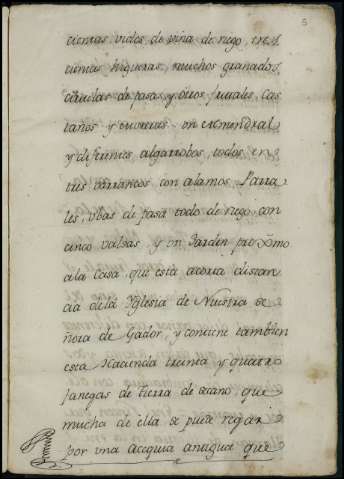 5
cientas vides de viña de riego, tres
cientas higueras, muchos granados,
ciruelas de pasa, y otros frutales, Cas
taños y moreras, un Almendral
y diferentes algarrobos, todos en
tres barrancos con alamos Parra
les, ubas de pasa todo de riego, con
cinco valsas, y un Jardin proximo
a la Casa, que esta a corta distan
cia de la Yglesia de Nuestra Se
ñora de Gador, y contiene tambien
esta Hacienda treinta y quatro
fanegas de tierra de secano, que
mucha de ella se puede regar
por una Acequia antigua que